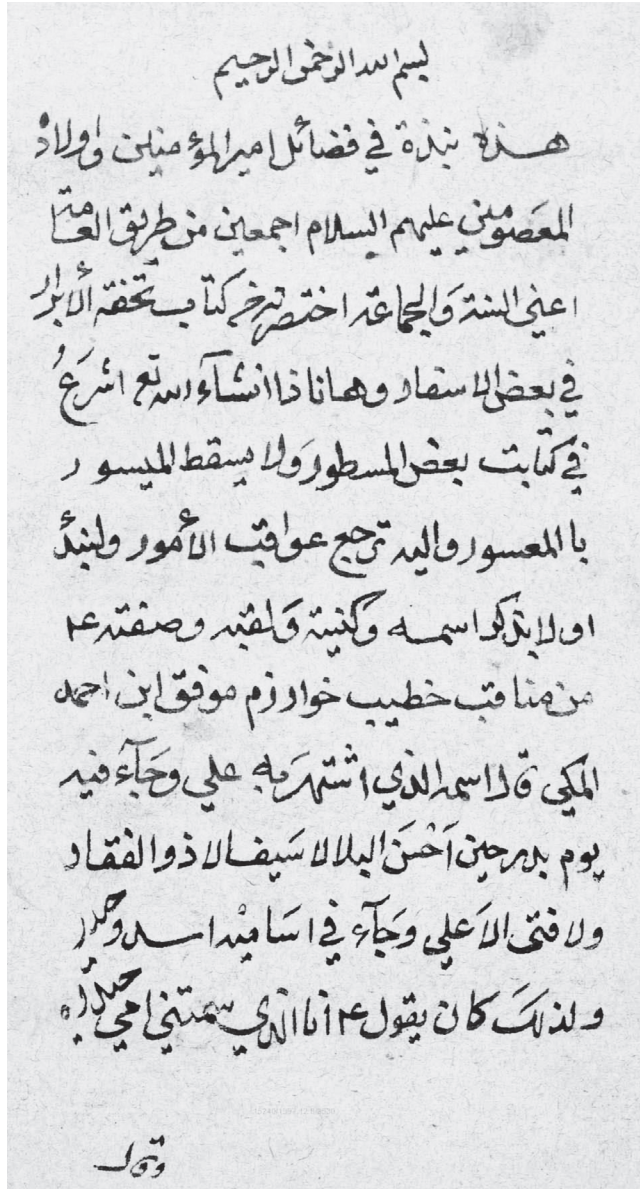 بسم الله الرحمن الرحيم
هذه نبذة في فضائل اميرالمؤمنين واولاده
المعَصومين عليهم السلام اجمعين من طريق العامة
اعني السنة وَالجماعة اختصرته من كتاب تحفة الأبرار
في بعض الاسفار وها نا ذا انشآء الله تع اشرَعُ
في كتابت بعض المسطور وَلا يسقط الميسور
با المعسور واليه ترجع عواقب الأمور ولنبدأ
اولا بذكر اسمه وكنيته وَلقبه وصفته ع
من مناقب خطيب خوارزم موفق ابن احمد
المكي قال اسمه الذي اشتهرَ به علي وجَآء فيه
يوم بدر حين اَحْسَنَ البلا لا سَيف الا ذو الفقار
ولا فتى الاَ علي وَجَآء في اسَاميْه اسد وحيدر
ولذلكَ كان يقول ع انا الذي سمتني امي حيدره
وقال